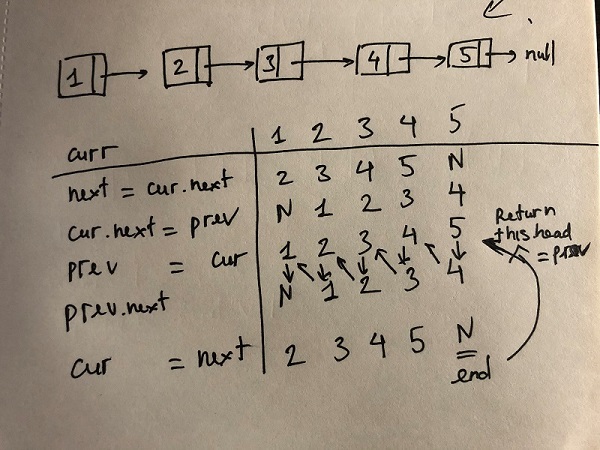 1 2 3 4 5 null
curr 1 2 3 4 5
next = cur.next 2 3 4 5 N
cur.next = prev N 1 2 3 4
prev = cur 1 2 3 4 5
prev.next N 1 2 3 4
cur = next 2 3 4 5 N
end
Return
this head
= prev